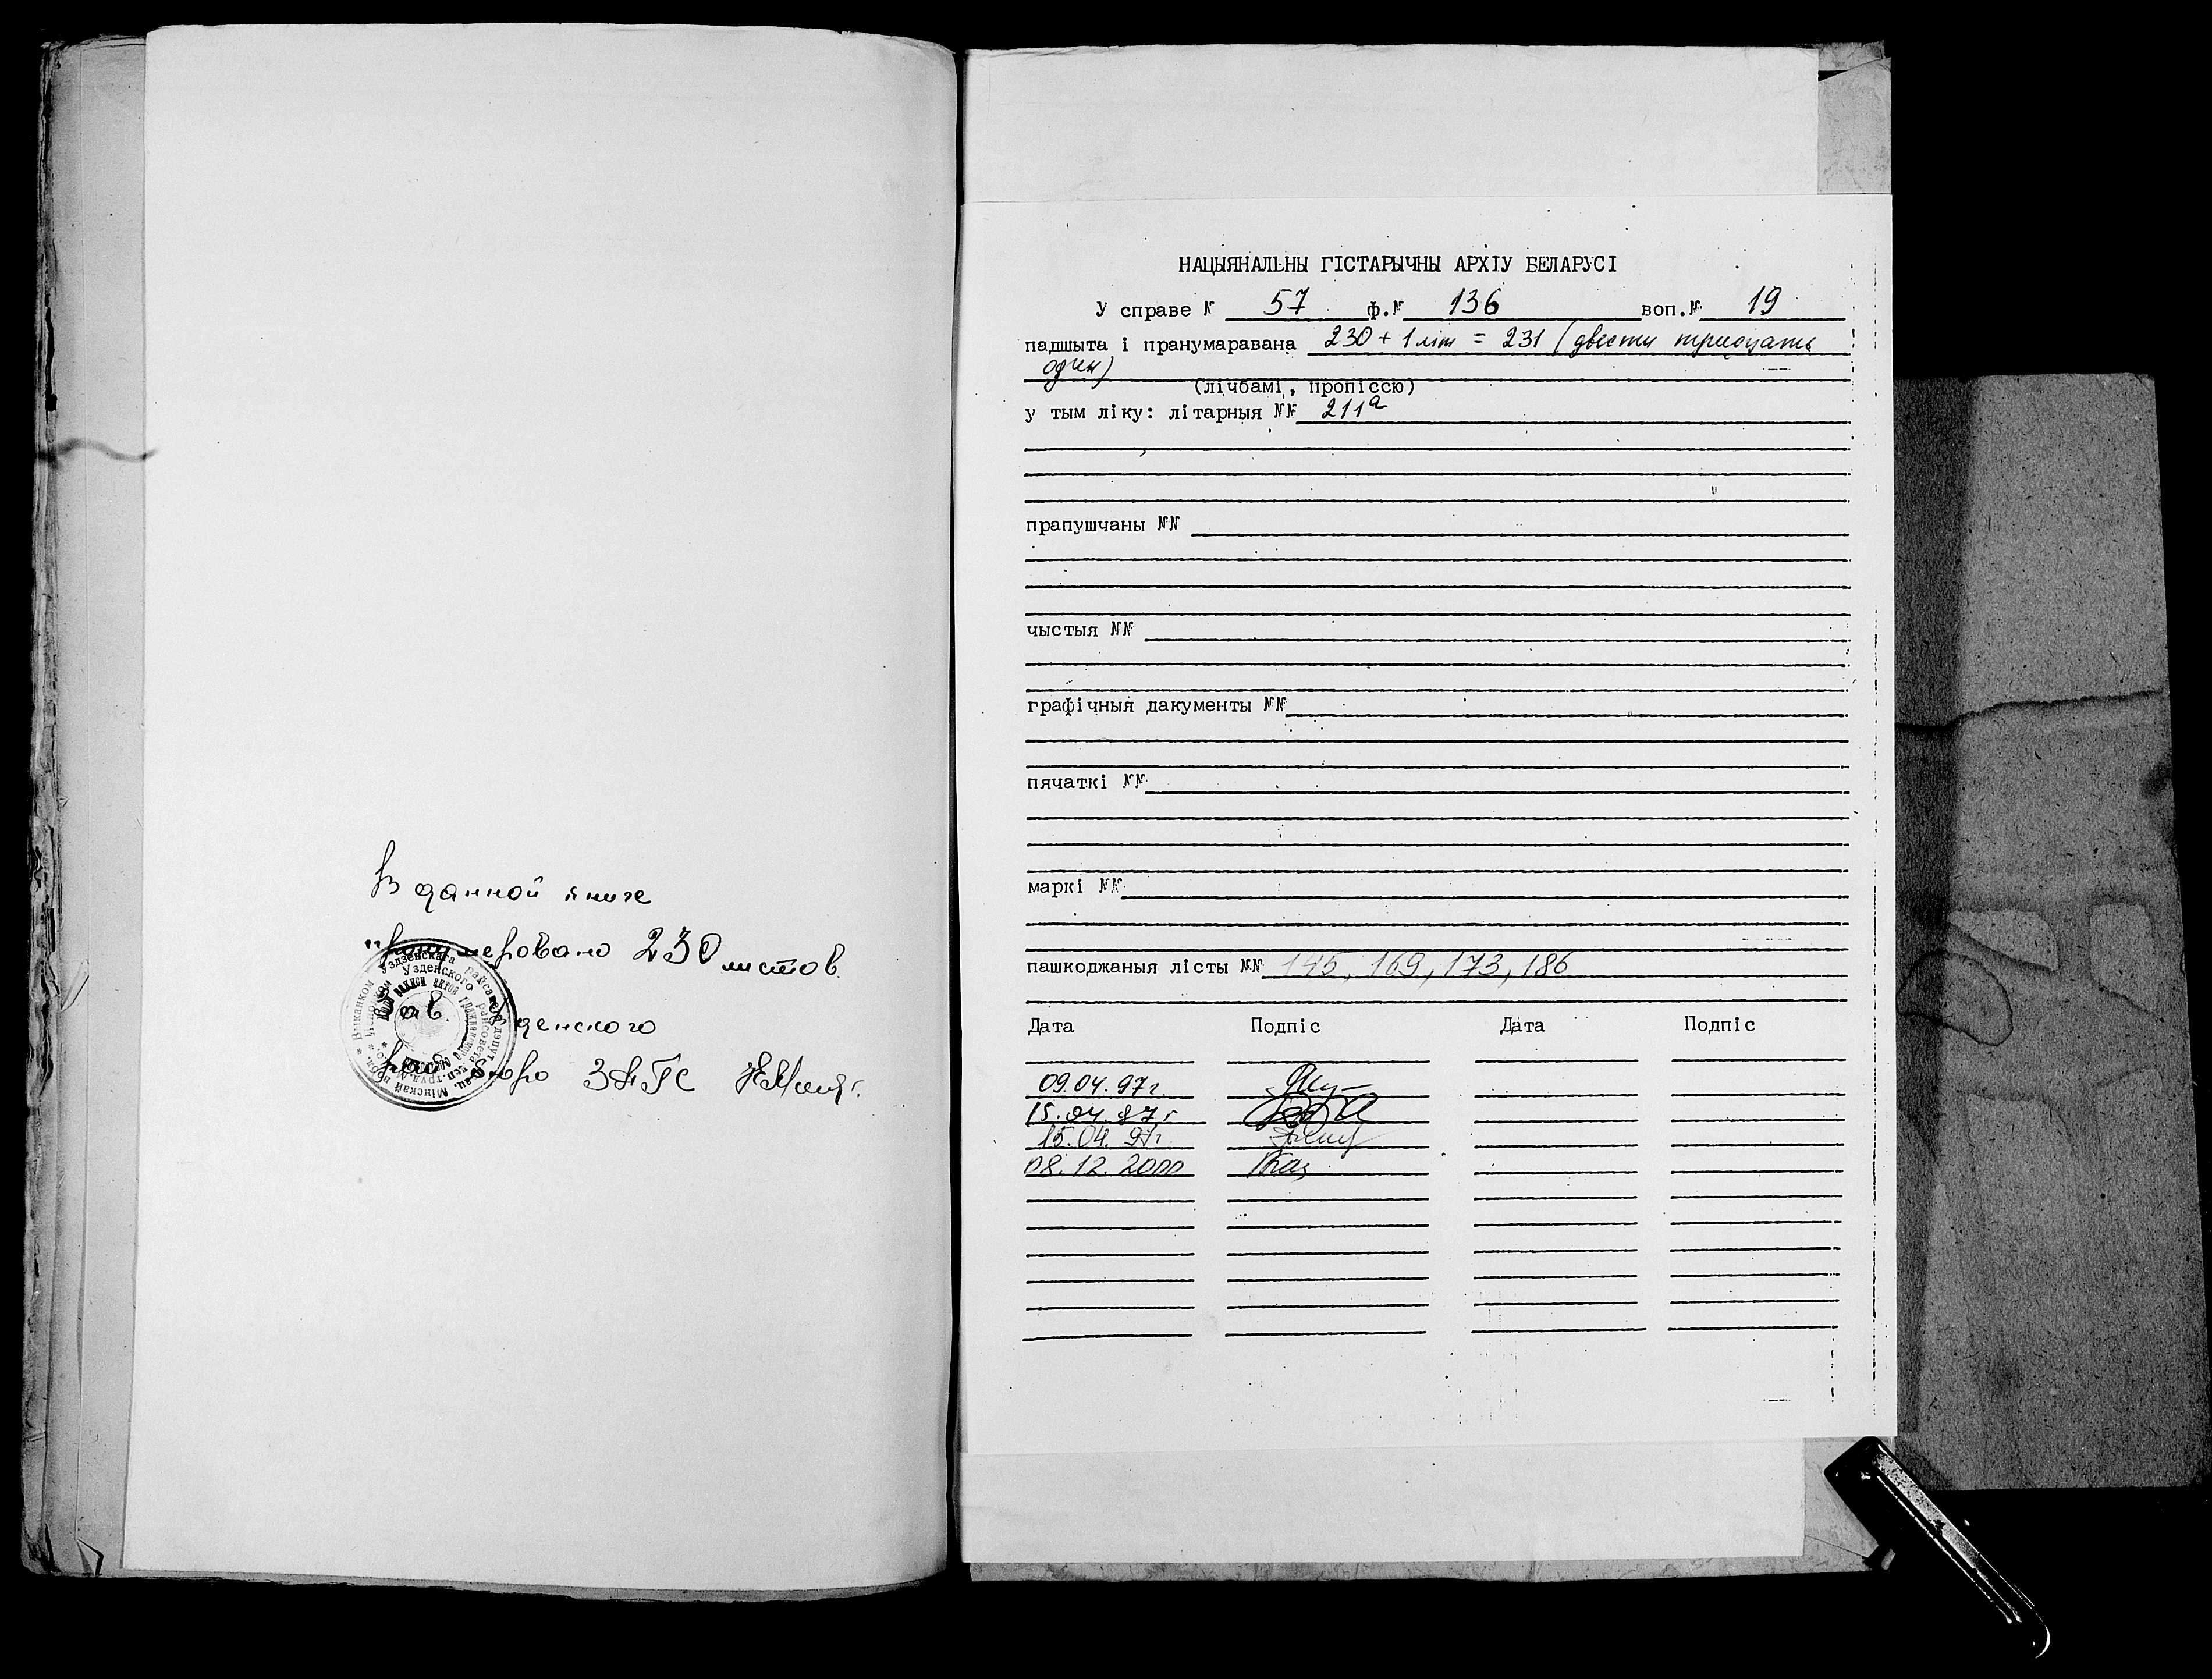 В данной книге
пронумеровано 230 листов.
Зав. Узденского
бюро ЗАГС
Уздзенскага
Узденского райсовета
Мінскай вобл.
НАЦЫЯНАЛЬНЫ ГІСТАРЫЧНЫ АРХІУ БЕЛАРУСІ
У справе № 57 ф.№ 136 воп.№ 19
падшыта і пранумаравана 230 + 1 літ = 231 (двести тридцать
один)
(лічбамі, пропіссю)
у тым ліку: літарныя №№ 211а
прапушчаны №№
чыстыя №№
графічныя дакументы №№
пячаткі №№
маркі №№
пашкоджаныя лісты №№ 145, 169, 173, 186
Дата Подпіс Дата Подпіс
09.04.97г
15.04.97г
15.04.97г
08.12.2000